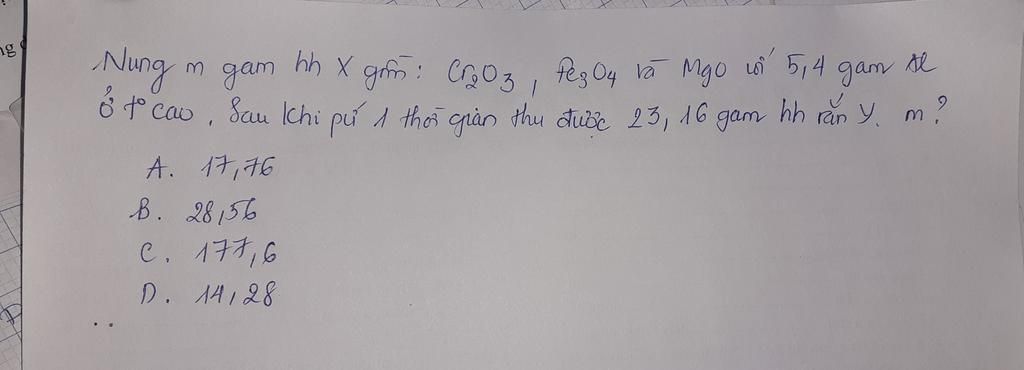 ng
Nung m gam hh X gồm: Cr₂O₃, Fe₃O₄ và MgO với 5,4 gam Al
ở t° cao. Sau khi pứ 1 thời gian thu được 23,16 gam hh rắn Y. m?
A. 17,76
B. 28,56
C. 177,6
D. 14,28